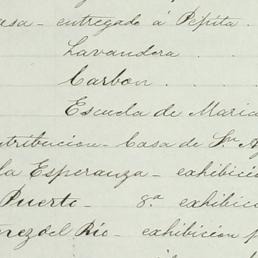 asa - entregado á Pepita .
Lavandera .
Carbon .
Escuela de Maria
tribucion - Casa de Sn A
la Esperanza - exhibició
Puerto - 8.a exhibic
nez del Rio - exhibición p